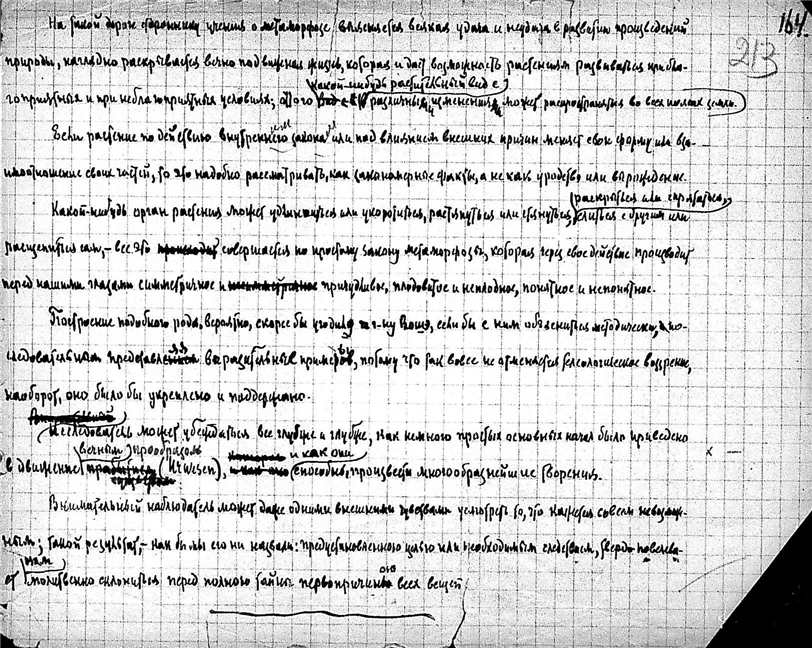 164.
213
На такой дороге стороннику учения о метаморфозе выясняется всякая удача и неудача в развитии произведений
природы, наглядно раскрывается вечно подвижная жизнь, которая и даёт возможность растениям развиваться при бла-
какой-нибудь растительный вид с
гоприятных и при неблагоприятных условиях; этого различных изменениях может распространяться во всех поясах земли.
Если растение по действию внутреннего закона или под влиянием внешних причин меняет свою форму или вза-
имоотношение своих частей, то это надобно рассматривать, как закономерные факты, а не как уродство или вырождение.
раскрыться или спрятаться,
Какой-нибудь орган растения может удлиниться или укоротиться, растянуться или стянуться, слиться с другим или
расщепиться сам, – все это совершается по простому закону метаморфозы, которая через свое действие производит
перед нашими глазами симметричное и причудливое, плодовитое и неплодное, понятное и непонятное.
Построение подобного рода, вероятно, скорее бы угодило г-ну, если бы с ним объясниться методически, по-
следовательным представлением выразительных примеров, потому что так вовсе не отменяется телеологическое воззрение,
наоборот, оно было бы укреплено и поддержано.
Исследователь может убеждаться все глубже и глубже, как немного простых основных начал было приведено
вечным прообразом и как они
в движение (Urwesen), способны произвести многообразнейшие творения.
Внимательный наблюдатель может даже одними внешними чувствами усмотреть то, что кажется совсем невозмож-
ным; такой результат, – как бы мы его ни назвали: предустановленною целью или необходимым следствием, твердо повелева-
нам
ет молитвенно склониться перед полною тайны первопричиною всех вещей